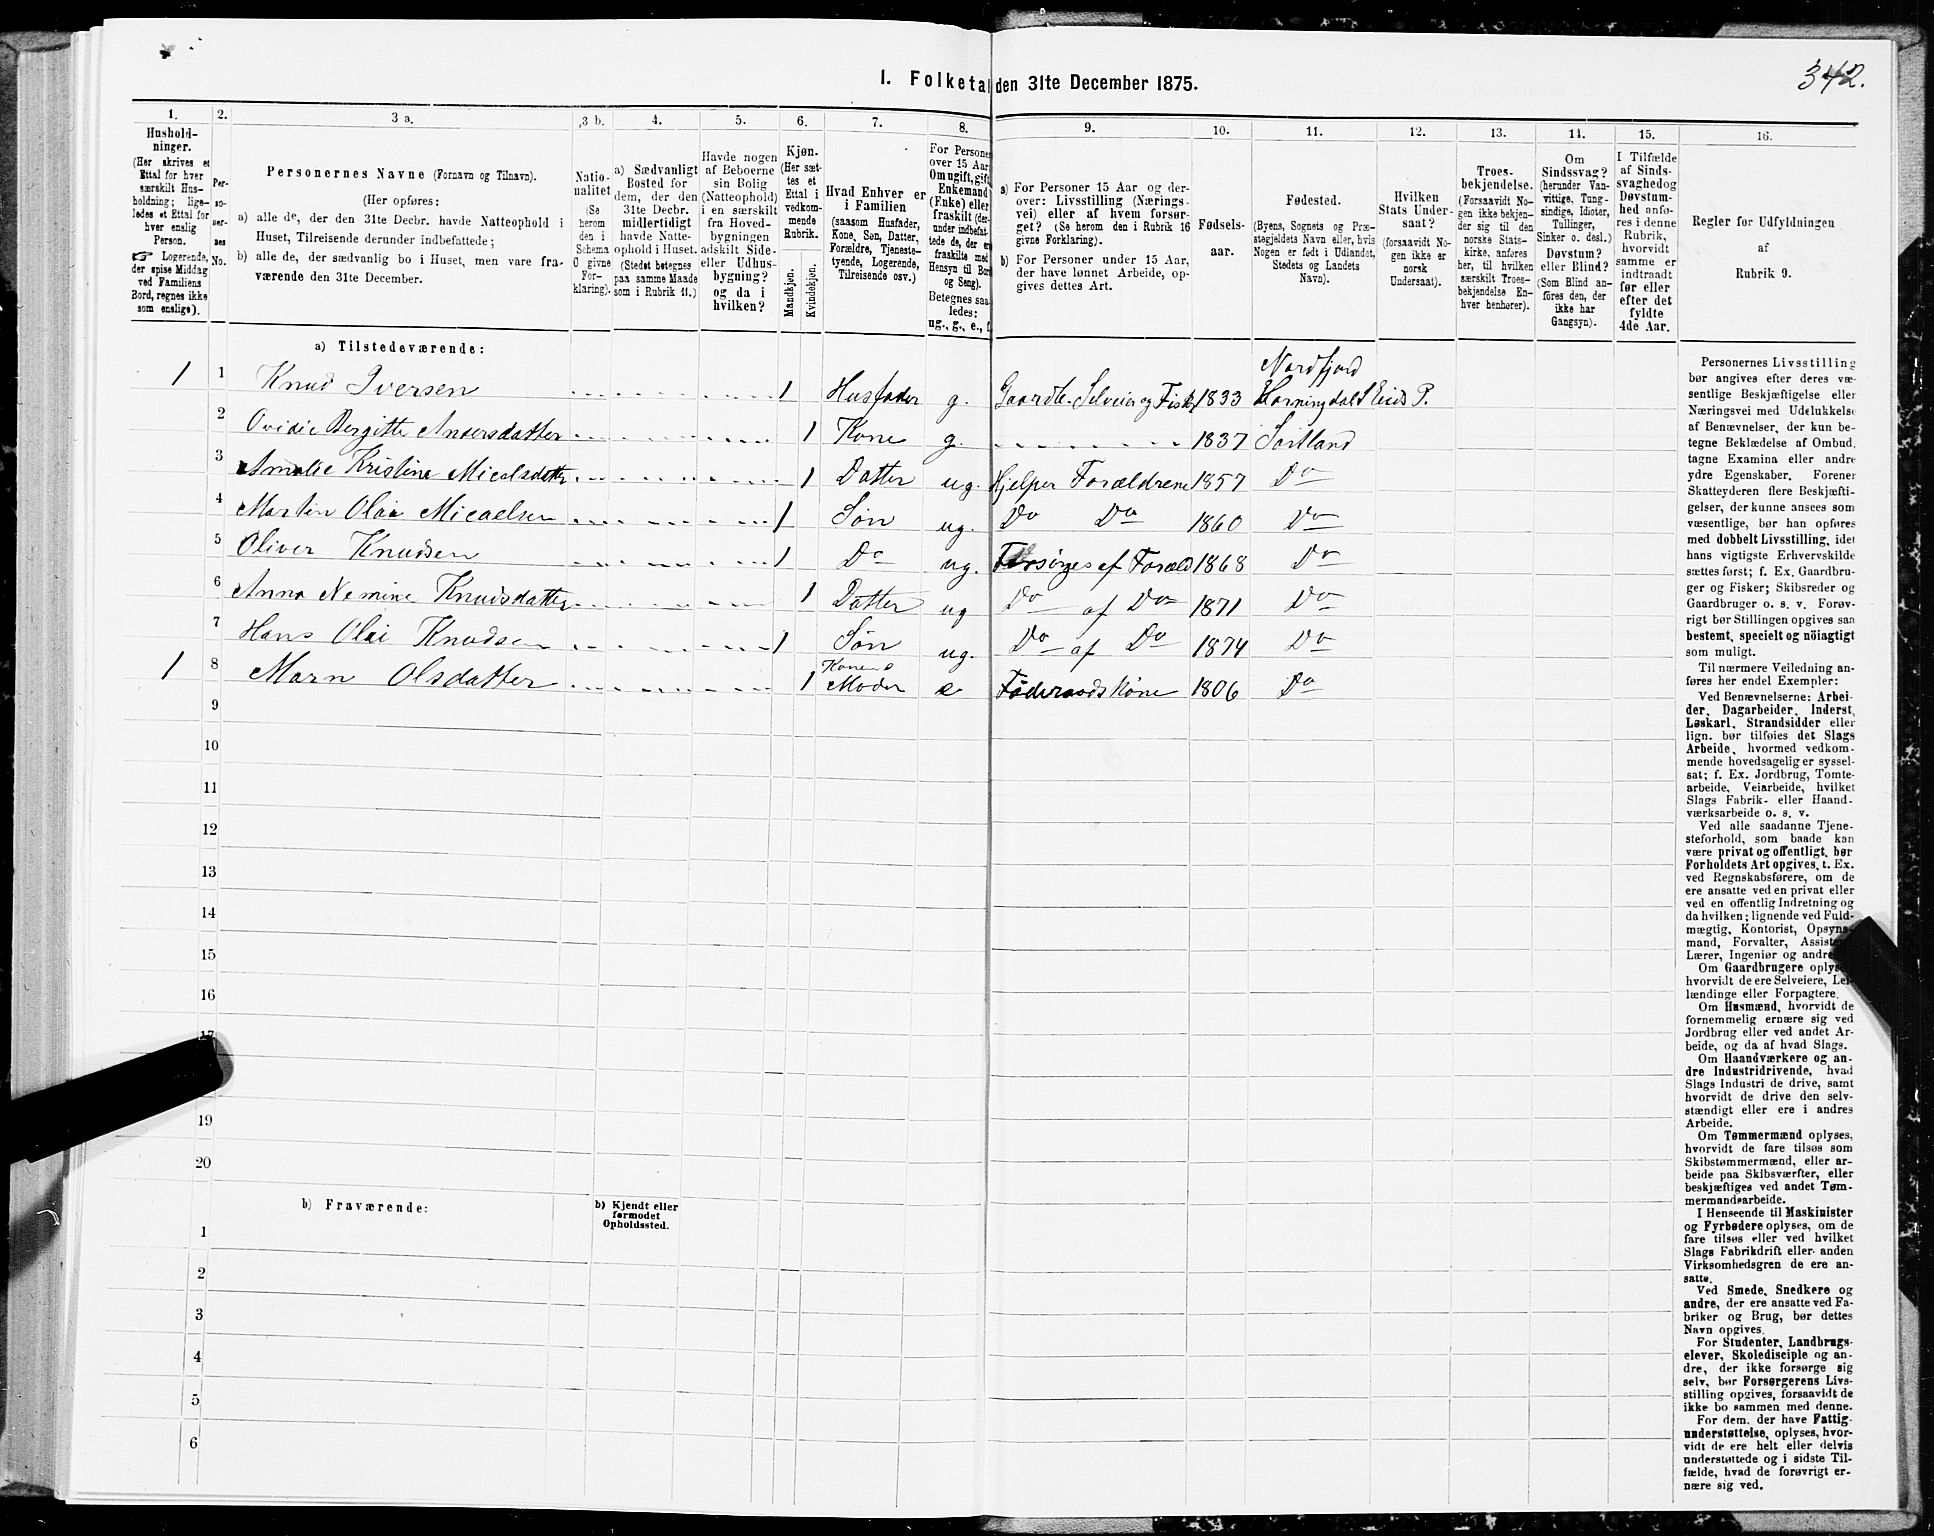 342.
I. Folketal den 31te December 1875.
1.
Hushold-
ninger.
(Her skrives et
Ettal for hver
særskilt Hus-
holdning; lige-
ledes et Ettal for
hver enslig
Person.
☞ Logerende,
der spise Middag
ved Familiens
Bord, regnes ikke
som enslige).
2.
Per-
so-
ner-
nes
No.
3 a.
Personernes Navne (Fornavn og Tilnavn).
(Her opføres:
a) alle de, der den 31te Decbr. havde Natteophold i
Huset, Tilreisende derunder indbefattede;
b) alle de, der sædvanlig bo i Huset, men vare fra-
værende den 31te December.
3 b.
Natio-
nalitet
(Se
herom
den i
Schema
O givne
For-
klaring).
4.
a) Sædvanligt
Bosted for
dem, der den
31te Decbr.
midlertidigt
havde Natte-
ophold i Huset.
(Stedet betegnes
paa samme Maade
som i Rubrik 11.)
5.
Havde nogen
af Beboerne
sin Bolig
(Natteophold)
i en særskilt
fra Hoved-
bygningen
adskilt Side-
eller Udhus-
bygning?
og da i
hvilken?
6.
Kjøn.
(Her sæt-
tes et
Ettal i
vedkom-
mende
Rubrik.
Mandkjøn.
Kvindekjøn.
7.
Hvad Enhver er
i Familien
(saasom Husfader,
Kone, Søn, Datter,
Forældre, Tjeneste-
tyende, Logerende,
Tilreisende osv.)
8.
For Personer
over 15 Aar:
Om ugift, gift,
Enkemand
(Enke) eller
fraskilt (der-
under indbefat-
tede de, der ere
fraskilte med
Hensyn til Bord
og Seng).
Betegnes saa-
ledes:
ug., g., e., f.
9.
a) For Personer 15 Aar og der-
over: Livsstilling (Nærings-
vei) eller af hvem forsør-
get? (Se herom den i Rubrik 16
givne Forklaring).
b) For Personer under 15 Aar,
der have lønnet Arbeide, op-
gives dettes Art.
10.
Fødsels-
aar.
11.
Fødested.
(Byens, Sognets og Præ-
stegjeldets Navn eller, hvis
Nogen er født i Udlandet,
Stedets og Landets
Navn).
12.
Hvilken
Stats Under-
saat?
(forsaavidt No-
gen ikke er
norsk
Undersaat).
13.
Troes-
bekjendelse.
(Forsaavidt No-
gen ikke bekjen-
der sig til den
norske Stats-
kirke, anføres
her, til hvilken
særskilt Troes-
bekjendelse En-
hver henhører).
14.
Om
Sindssvag?
(herunder Van-
vittige, Tung-
sindige, Idioter,
Tullinger,
Sinker o. desl.)
Døvstum?
eller Blind?
(Som Blind an-
føres den, der
ikke har
Gangsyn).
15.
I Tilfælde
af Sinds-
svaghed og
Døvstum-
hed anfø-
res i denne
Rubrik,
hvorvidt
samme er
indtraadt
før eller
efter det
fyldte
4de Aar.
16.
Regler for Udfyldningen
af
Rubrik 9.
a) Tilstedeværende:
Nordfjord
1 1 Knud Iversen 1 Husfader g. Gaardb. Selveier og Fisk 1833 Horningdal Eids P.
2 Ovidie Bergitte Andersdatter 1 Kone g. 1837 Sortland
3 Amalie Kristine Micalsdatter 1 Datter ug. Hjelper Forældrene 1857 Do
4 Morten Olai Micaelsen 1 Søn ug. Do Do 1860 Do
5 Oliver Knudsen 1 Do ug. Forsørges af Foræld 1868 Do
6 Anna Nemine Knudsdatter 1 Datter ug Do af Do 1871 Do
7 Hans Olai Knudsen 1 Søn ug. Do af Do 1874 Do
1 8 Marn Olsdatter 1 Konens Moder e Föderaadskone 1806 Do
9
10
11
12
13
14
15
16
17
19
20
b) Fraværende:
b) Kjendt eller
formodet
Opholdssted.
1
2
3
4
5
6
Personernes Livsstilling
bør angives efter deres væ-
sentlige Beskjæftigelse eller
Næringsvei med Udelukkelse
af Benævnelser, der kun be-
tegne Beklædelse af Ombud,
tagne Examina eller andre
ydre Egenskaber. Forener
Skatteyderen flere Beskjæfti-
gelser, der kunne ansees som
væsentlige, bør han opføres
med dobbelt Livsstilling, idet
hans vigtigste Erhvervskilde
sættes først; f. Ex. Gaardbru-
ger og Fisker; Skibsreder og
Gaardbruger o. s. v. Forøv-
rigt bør Stillingen opgives saa
bestemt, specielt og nöiagtigt
som muligt.
Til nærmere Veiledning an-
føres her endel Exempler:
Ved Benævnelserne: Arbei-
der, Dagarbeider, Inderst,
Løskarl, Strandsidder eller
lign. bør tilføies det Slags
Arbeide, hvormed vedkom-
mende hovedsagelig er syssel-
sat; f. Ex. Jordbrug, Tomte-
arbeide, Veiarbeide, hvilket
Slags Fabrik- eller Haand-
værksarbeide o. s. v.
Ved alle saadanne Tjene-
steforhold, som baade kan
være privat og offentligt, bør
Forholdets Art opgives, t. Ex.
ved Regnskabsførere, om de
ere ansatte ved en privat eller
ved en offentlig Indretning og
da hvilken; lignende ved Fuld-
mægtig, Kontorist, Opsyns-
mand, Forvalter, Assistent,
Lærer, Ingeniør og andre.
Om Gaardbrugere oplyses,
hvorvidt de ere Selveiere, Lei-
lændinge eller Forpagtere.
Om Husmænd, hvorvidt de
fornemmelig ernære sig ved
Jordbrug eller ved andet Ar-
beide, og da af hvad Slags.
Om Haandværkere og an-
dre Industridrivende, hvad
Slags Industri de drive, samt
hvorvidt de drive den selv-
stændigt eller ere i andres
Arbeide.
Om Tømmermænd oplyses,
hvorvidt de fare tilsøs som
Skibstømmermænd, eller ar-
beide paa Skibsværfter, eller
beskjæftiges ved andet Tøm-
mermandsarbeide.
I Henseende til Maskinister
og Fyrbødere oplyses, om de
fare tilsøs eller ved hvilket
Slags Fabrikdrift eller anden
Virksomhedsgren de ere an-
satte.
Ved Smede, Snedkere og
andre, der ere ansatte ved Fa-
briker og Brug, bør dettes
Navn opgives.
For Studenter, Landbrugs-
elever, Skoledisciple og an-
dre, der ikke forsørge sig
selv, bør Forsørgerens Livs-
stilling opgives, forsaavidt de
ikke bo sammen med denne.
For dem, der have Fattig-
understøttelse, oplyses, hvor-
vidt de ere helt eller delvis
understøttede og i sidste Til-
fælde, hvad de forøvrigt er-
nære sig ved.